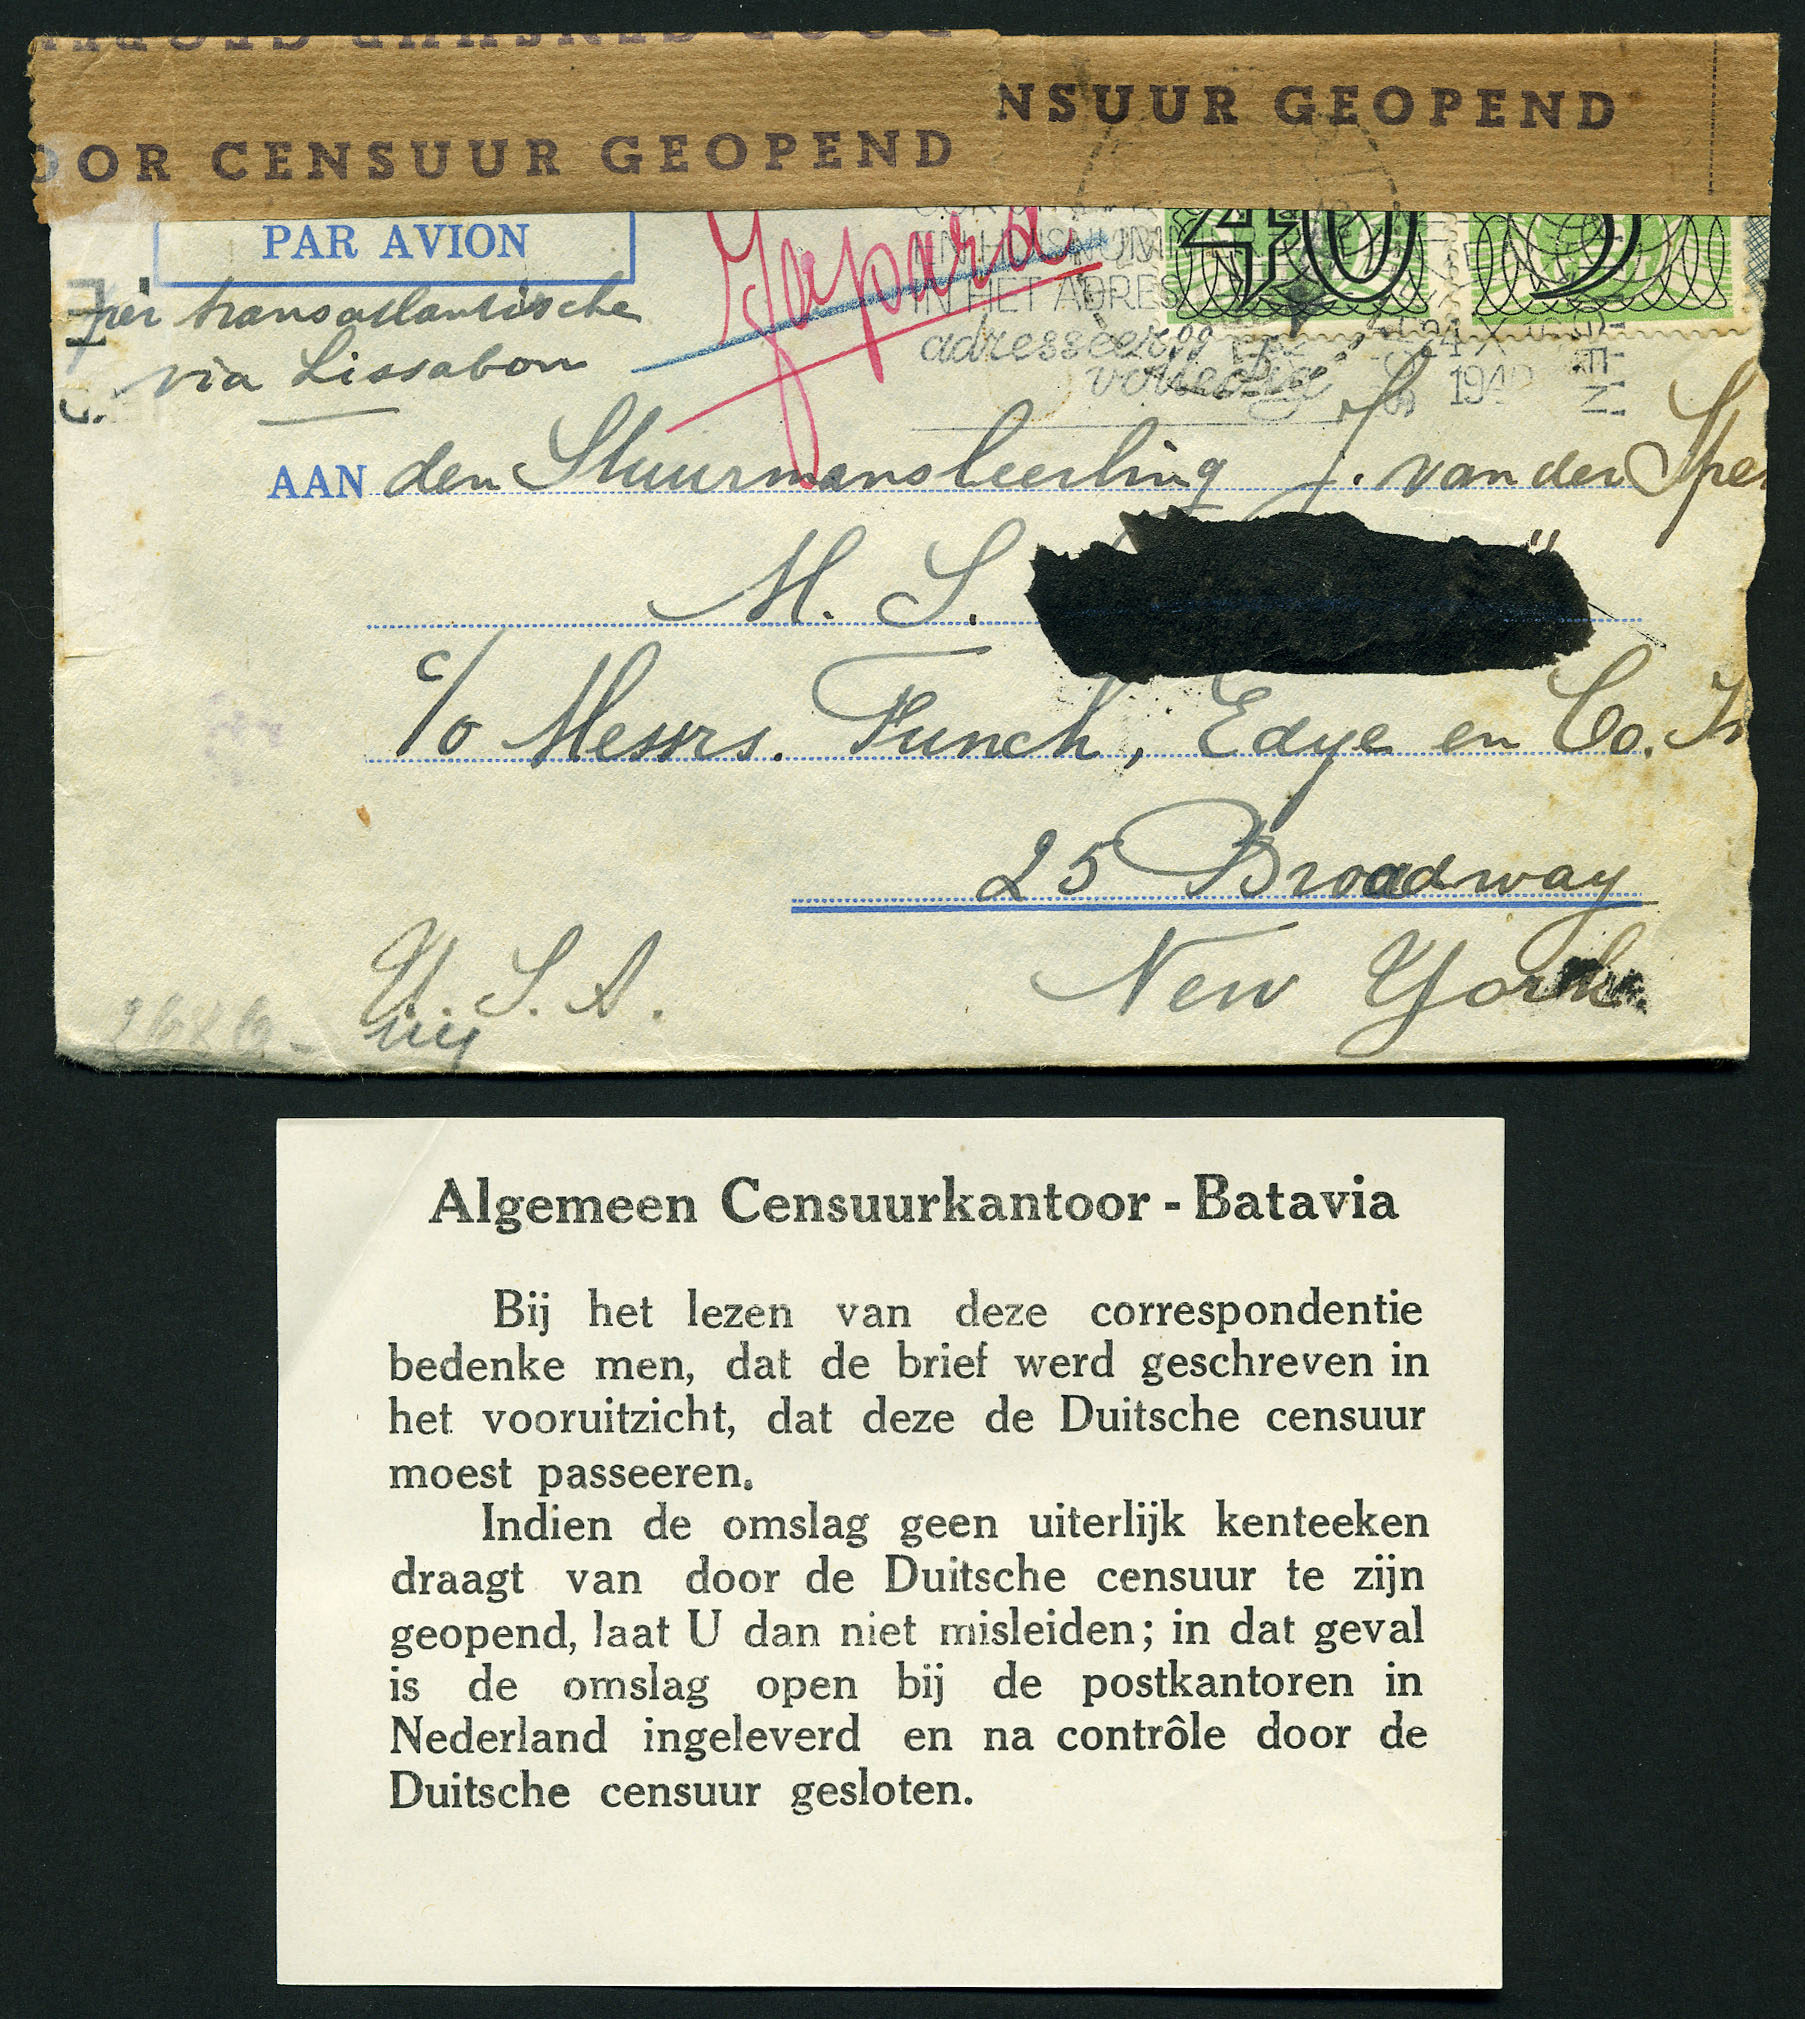 DOOR CENSUUR GEOPEND
OOR CENSUUR GEOPEND
NSUUR GEOPEND
PAR AVION
per transatlantische
via Lissabon
Japara
EN HUISNUM
IN HET ADRES
adresseer
volledig
24 X
1940
40
5
AAN den Stuurmansleerling J. van der Spe
M. S. "
c/o Messrs. Funch, Edye en Co. In
25 Broadway
New York.
U. S. A.
Algemeen Censuurkantoor - Batavia
Bij het lezen van deze correspondentie
bedenke men, dat de brief werd geschreven in
het vooruitzicht, dat deze de Duitsche censuur
moest passeeren.
Indien de omslag geen uiterlijk kenteeken
draagt van door de Duitsche censuur te zijn
geopend, laat U dan niet misleiden; in dat geval
is de omslag open bij de postkantoren in
Nederland ingeleverd en na contrôle door de
Duitsche censuur gesloten.